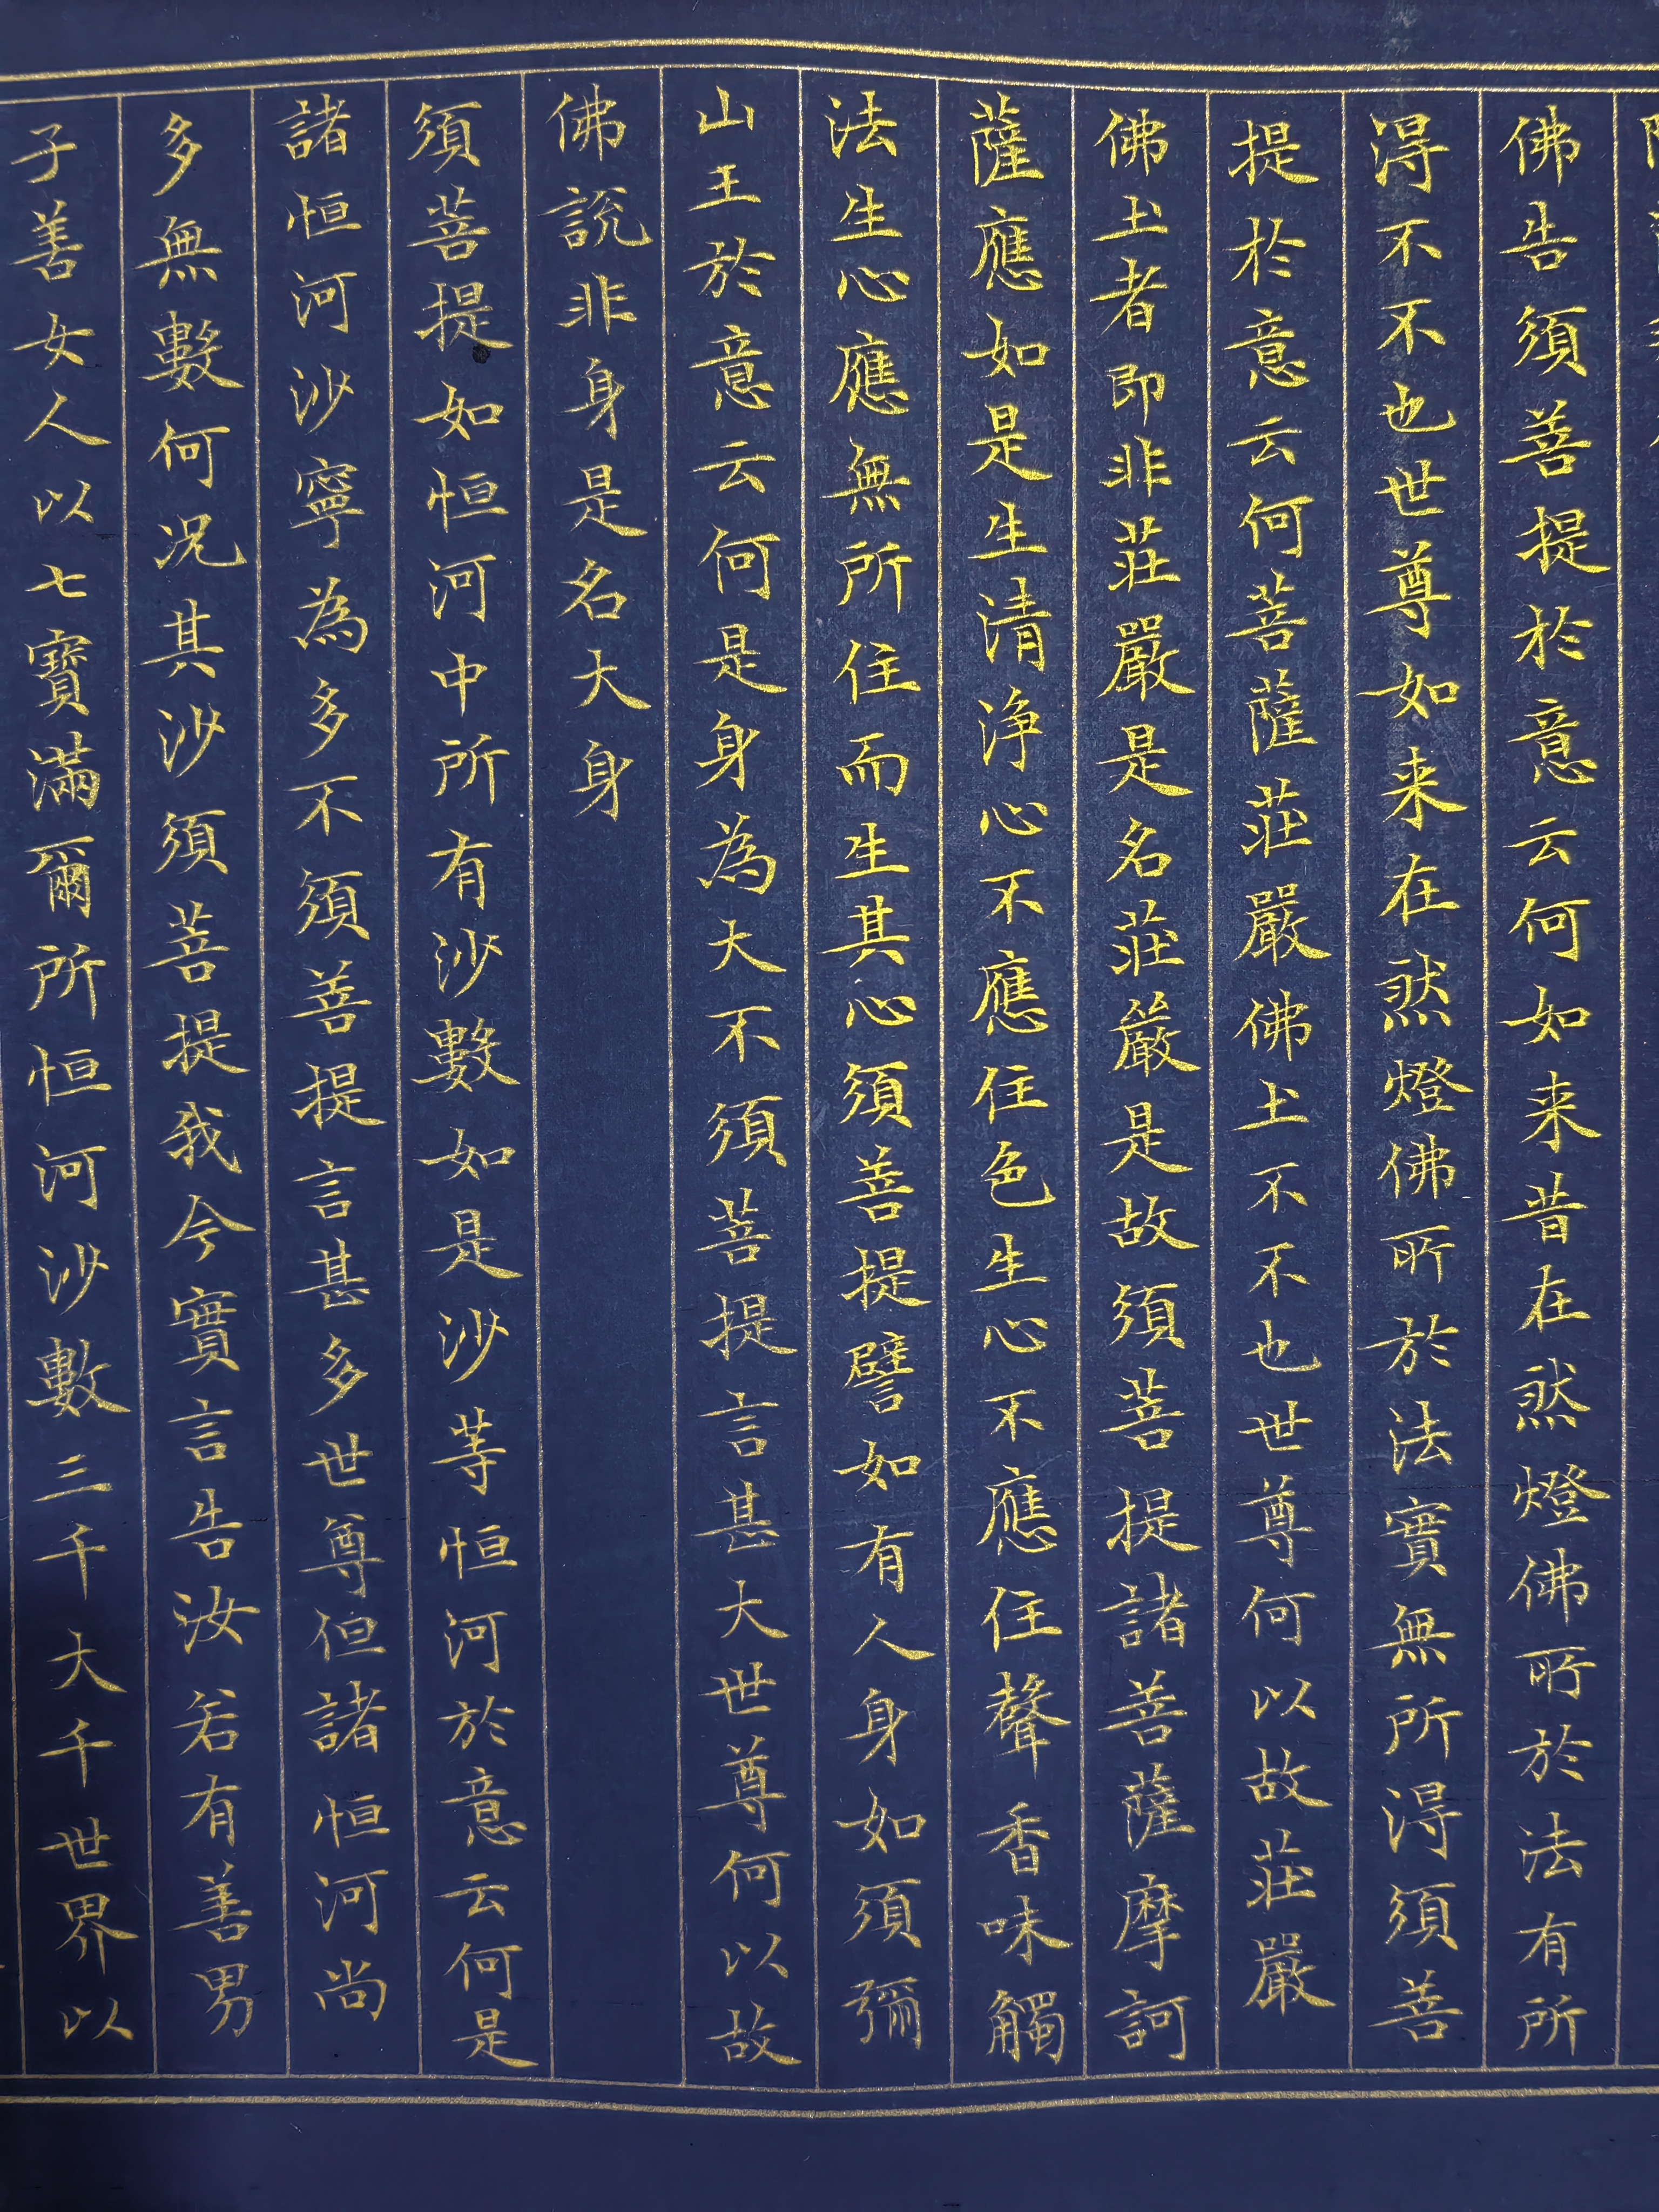 佛告須菩提於意云何如来昔在然燈佛所於法有所
得不不也世尊如来在然燈佛所於法實無所得須菩
提於意云何菩薩莊嚴佛土不不也世尊何以故莊嚴
佛土者即非莊嚴是名莊嚴是故須菩提諸菩薩摩訶
薩應如是生清浄心不應住色生心不應住聲香味觸
法生心應無所住而生其心須菩提譬如有人身如須彌
山王於意云何是身為大不須菩提言甚大世尊何以故
佛說非身是名大身
須菩提如恒河中所有沙數如是沙等恒河於意云何是
諸恒河沙寧為多不須菩提言甚多世尊但諸恒河尚
多無數何况其沙須菩提我今實言告汝若有善男
子善女人以七寶滿爾所恒河沙數三千大千世界以